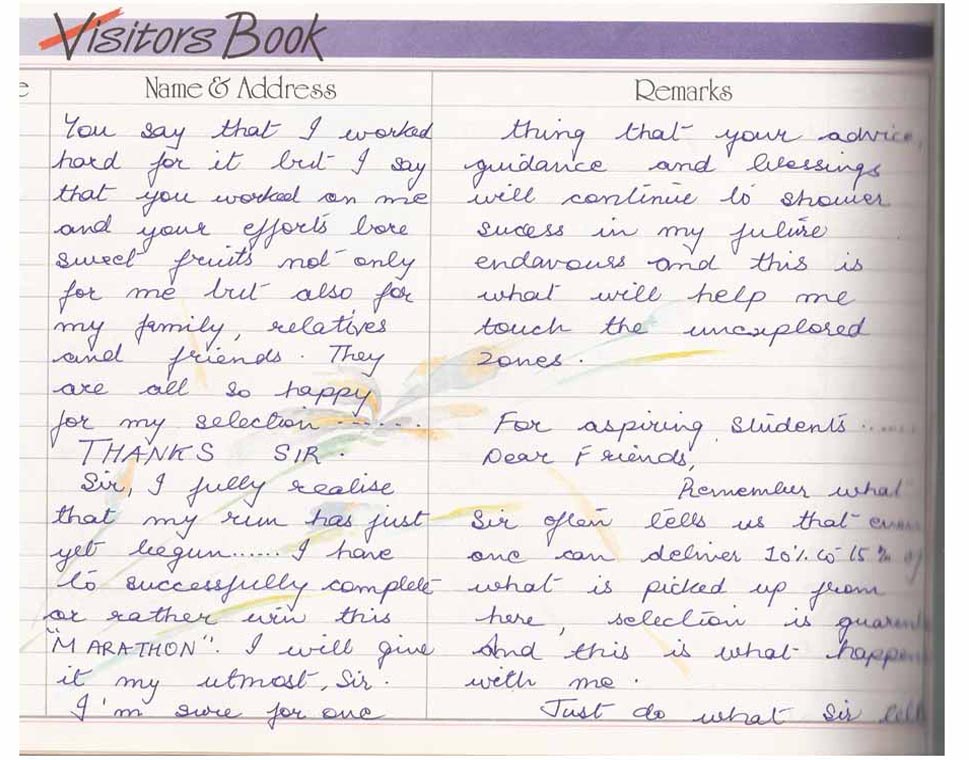 Visitors Book
e
Name & Address
You say that I worked
hard for it but I say
that you worked on me
and your efforts bore
sweet fruits not only
for me but also for
my family, relatives
and friends. They
are all so happy
for my selection .......
THANKS SIR.
Sir, I fully realise
that my run has just
yet begun...... I have
to successfully complete
or rather win this
"MARATHON". I will give
it my utmost, Sir.
I'm sure for one
Remarks
thing that your advice,
guidance and blessings
will continue to shower
sucess in my future
endavours and this is
what will help me
touch the unexplored
zones.
For aspiring students ......
Dear Friends,
Remember what
Sir often tells us that
one can deliver 10% to 15% of
what is picked up from
here, selection is
And this is what
with me.
Just do what Sir